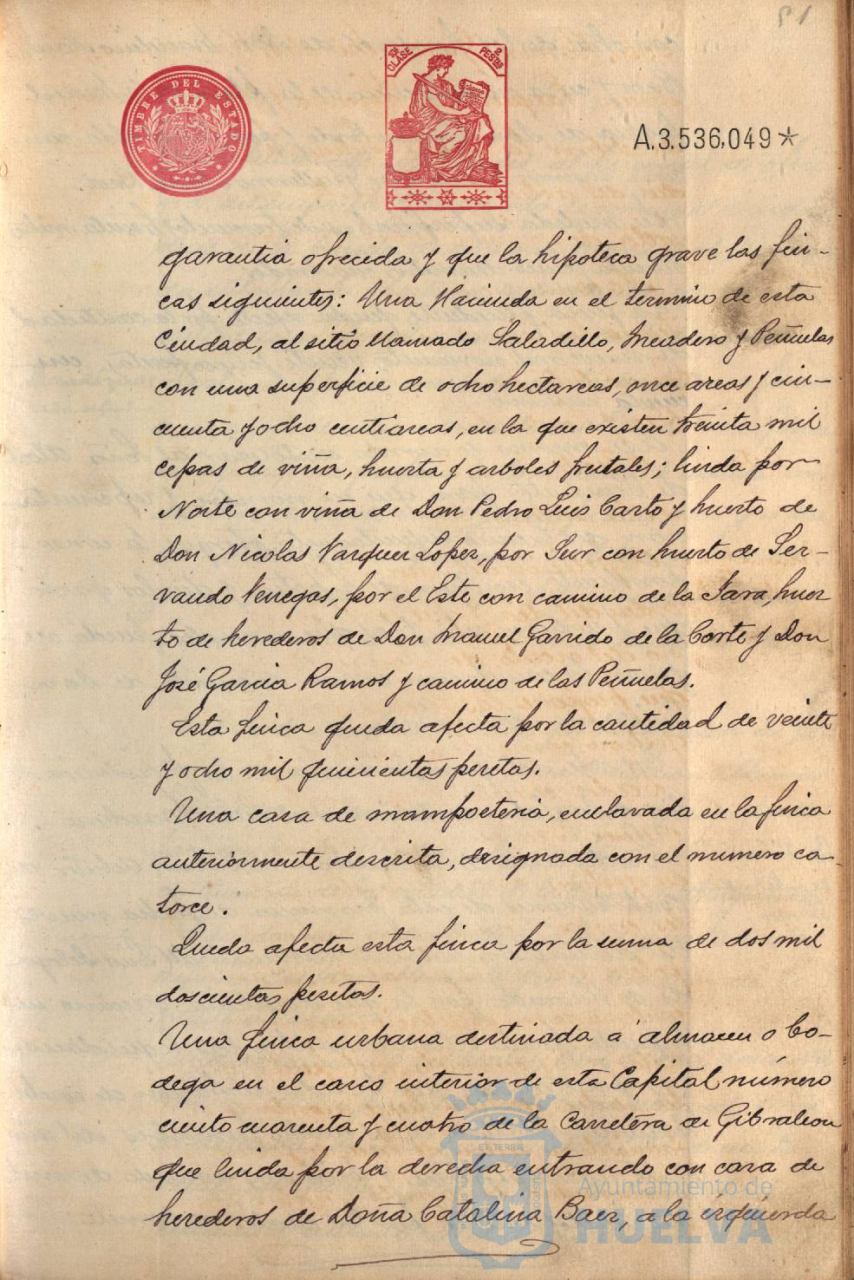 51
TIMBRE DEL ESTADO
10ª CLASE 2 PESETAS
A.3.536,049*
garantia ofrecida y que la hipoteca grave las fin-
cas siguientes: Una Hacienda en el termino de esta
Ciudad, al sitio llamado Saladillo, Meadero y Peñuelas
con una superficie de ocho hectareas, once areas y cin-
cuenta y ocho centiareas, en la que existen treinta mil
cepas de viña, huerta y arboles frutales; linda por
Norte con viña de Don Pedro Luis Casto y huerto de
Don Nicolas Vazquez Lopez, por Sur con huerto de Ser-
vando Venegas, por el Este con camino de la Jara, huer
to de herederos de Don Manuel Garrido de la Corte y Don
José Garcia Ramos y camino de las Peñuelas.
Esta finca queda afecta por la cantidad de veinte
y ocho mil quinientas pesetas.
Una casa de mamposteria, enclavada en la finca
anteriormente descrita, designada con el numero ca-
torce.
Queda afecta esta finca por la suma de dos mil
doscientas pesetas.
Una finca urbana destinada á almacen o bo-
dega en el casco interior de esta Capital número
ciento cuarenta y cuatro de la Carretera de Gibraleon
que linda por la derecha entrando con casa de
herederos de Doña Catalina Baez, a la izquierda
Ayuntamiento de
HUELVA